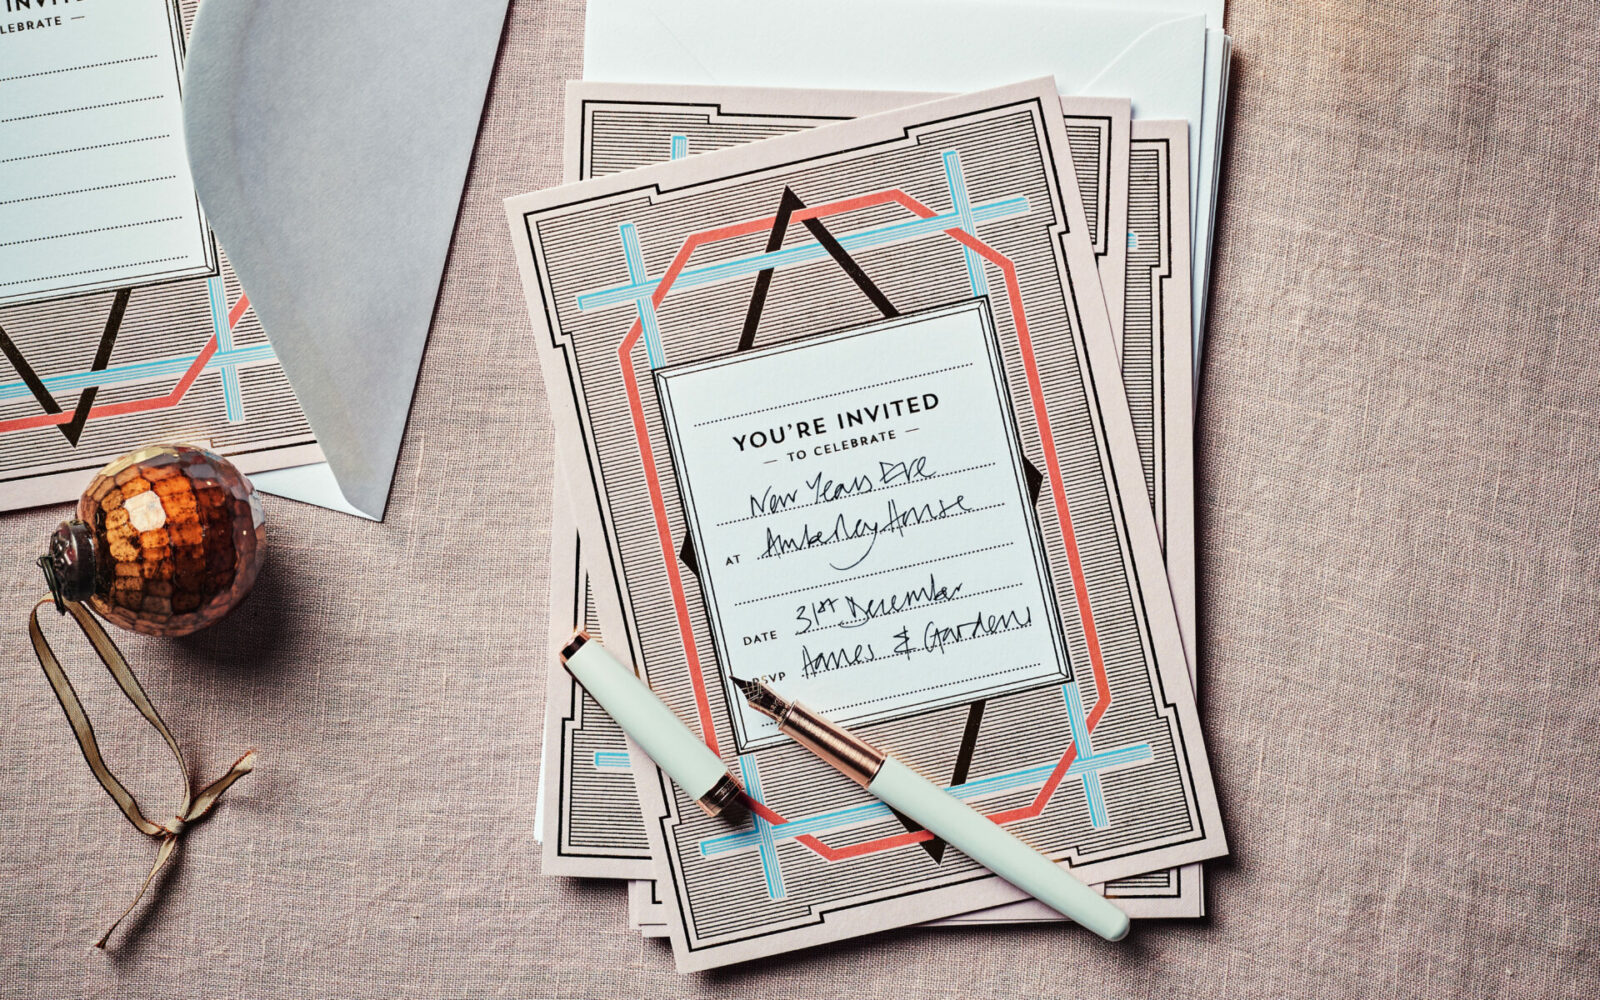 INVITED
CELEBRATE —
YOU'RE INVITED
— TO CELEBRATE —
New Years Eve
AT Amberley House
DATE 31st December
RSVP James & Gardens